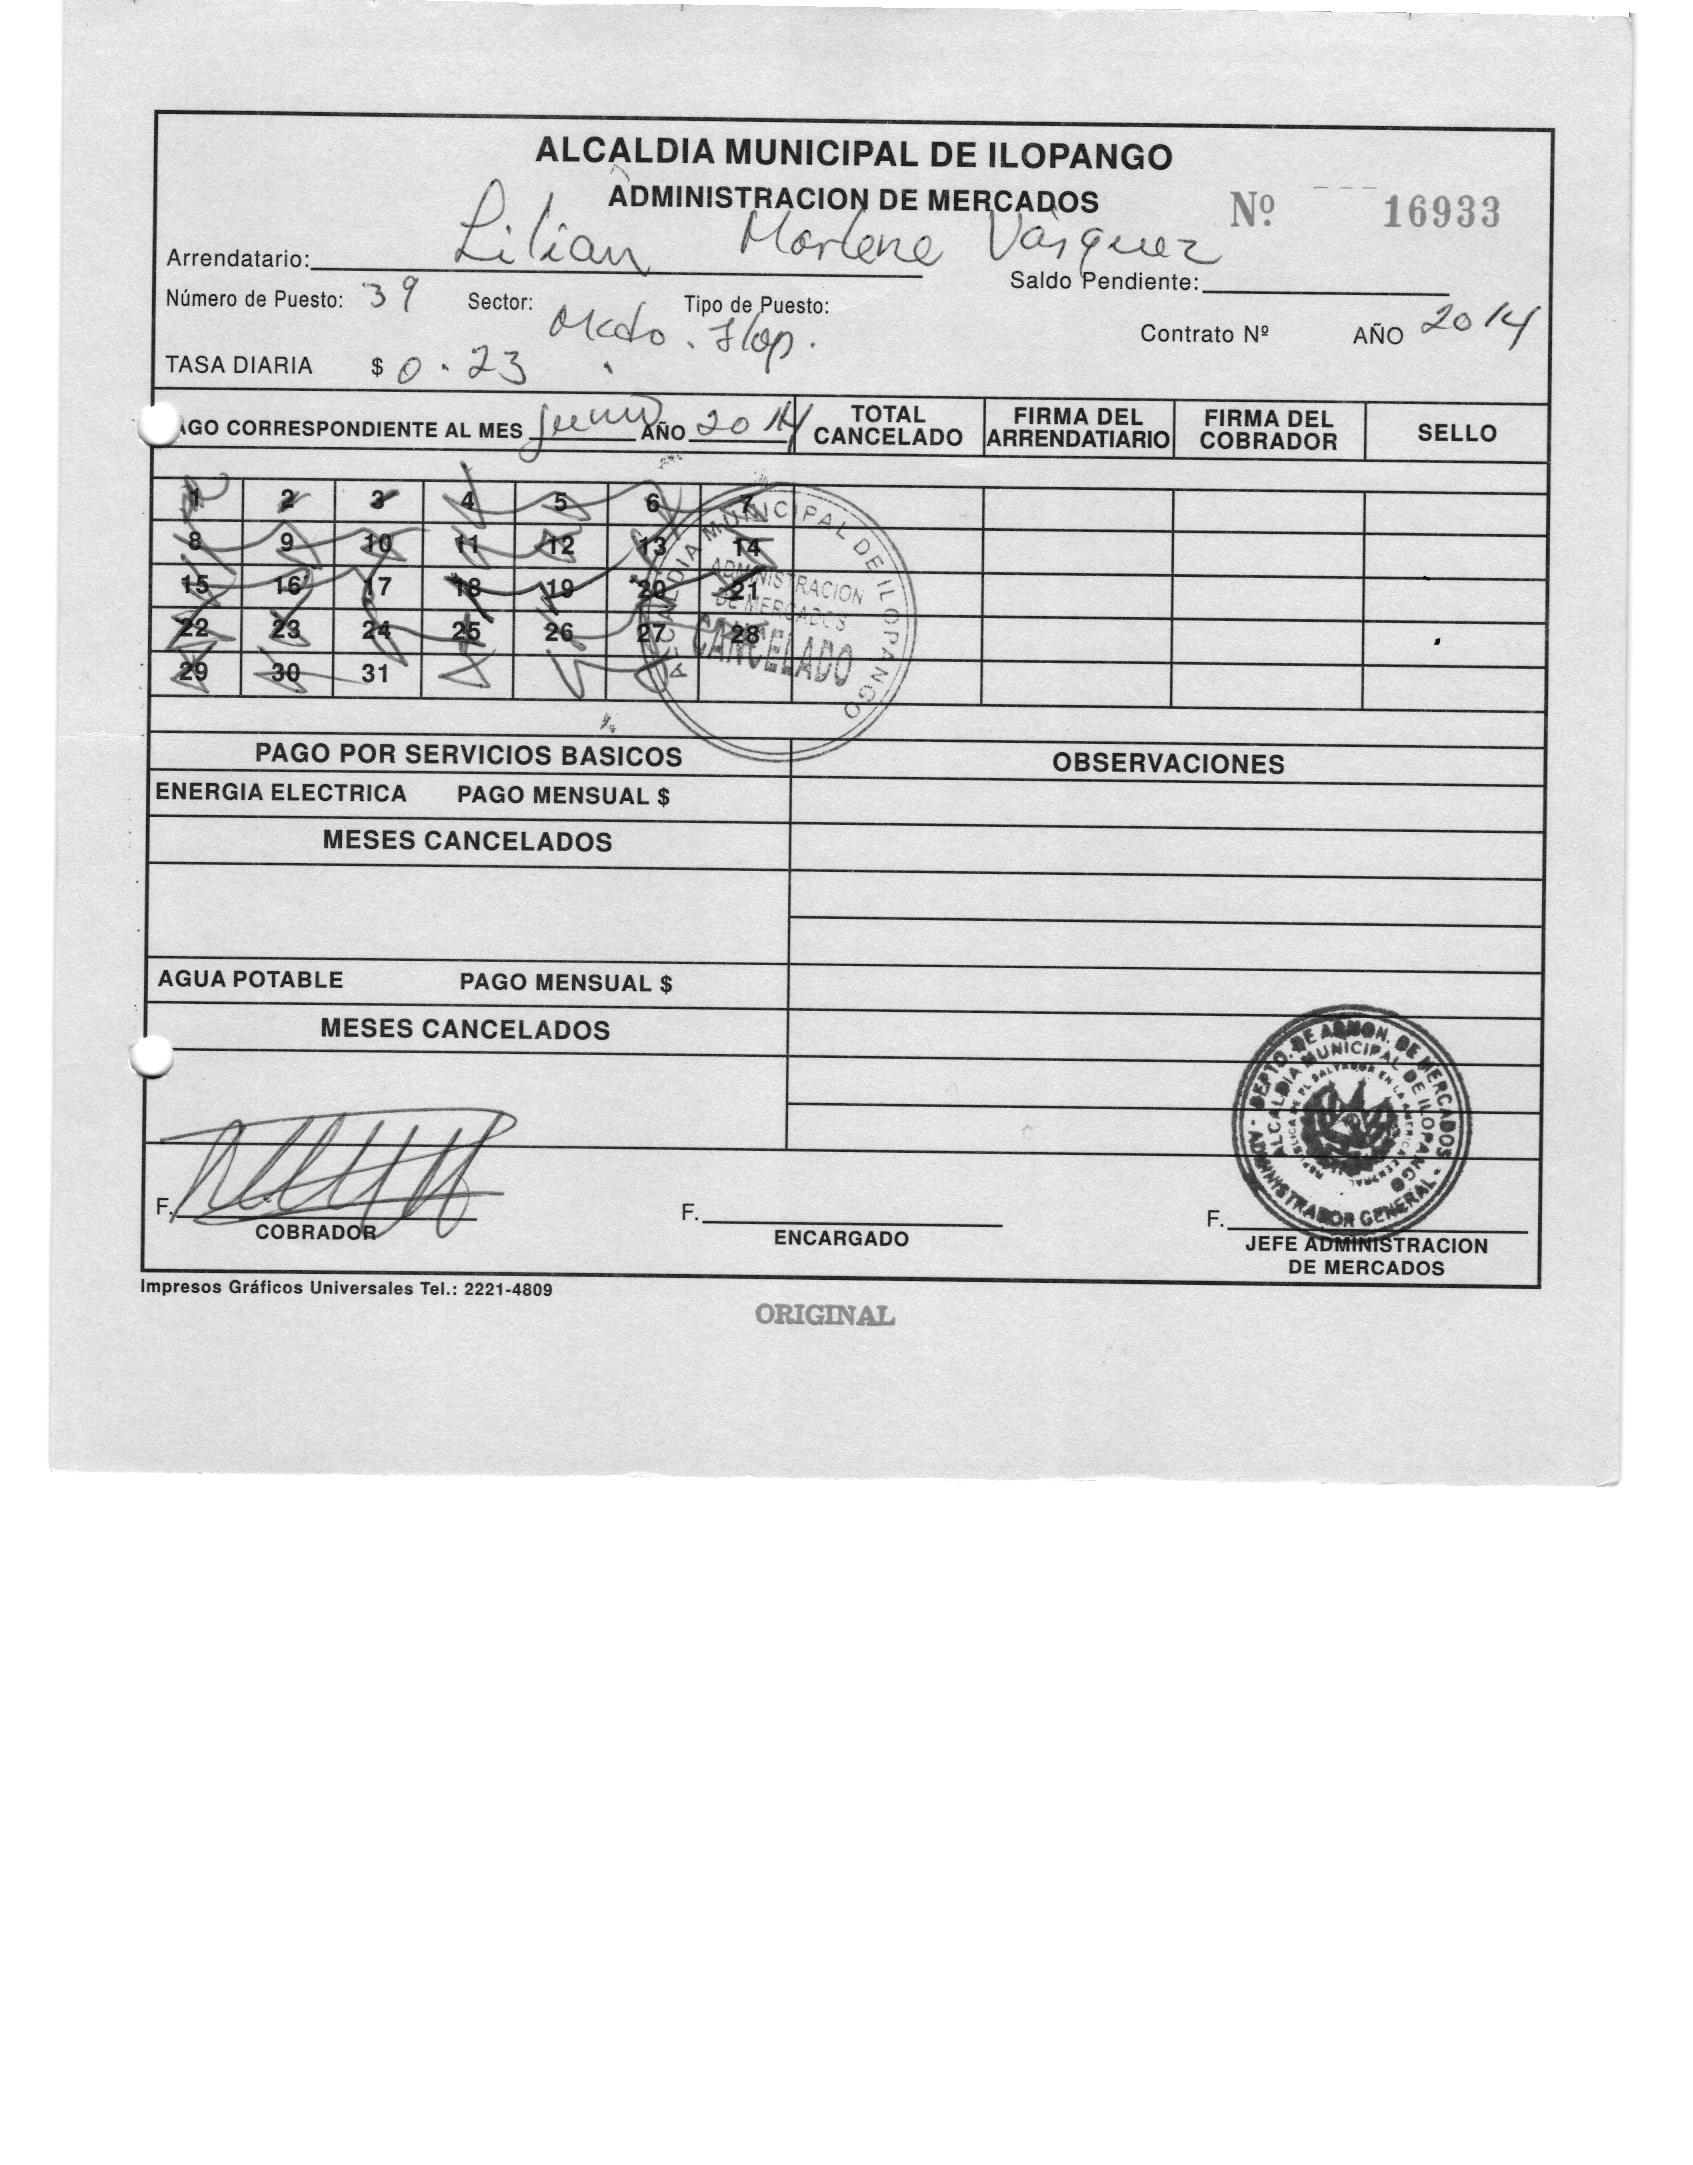 ALCALDIA MUNICIPAL DE ILOPANGO
ADMINISTRACION DE MERCADOS
Nº 16933
Arrendatario: Lilian Marlene Vásquez
Saldo Pendiente:
Número de Puesto: 39 Sector: Mcdo. Ilop. Tipo de Puesto:
Contrato Nº AÑO 2014
TASA DIARIA $ 0.23
AGO CORRESPONDIENTE AL MES Junio AÑO 2014
TOTAL CANCELADO
FIRMA DEL ARRENDATIARIO
FIRMA DEL COBRADOR
SELLO
1 2 3 4 5 6 7
8 9 10 11 12 13 14
15 16 17 18 19 20 21
22 23 24 25 26 27 28
29 30 31
ALCALDIA MUNICIPAL DE ILOPANGO
ADMINISTRACION
DE MERCADOS
CANCELADO
PAGO POR SERVICIOS BASICOS
OBSERVACIONES
ENERGIA ELECTRICA PAGO MENSUAL $
MESES CANCELADOS
AGUA POTABLE PAGO MENSUAL $
MESES CANCELADOS
DEPTO. DE ADMON. DE MERCADOS - ADMINISTRADOR GENERAL -
ALCALDIA MUNICIPAL DE ILOPANGO
REPUBLICA DE EL SALVADOR EN LA AMERICA CENTRAL
F.
COBRADOR
F.
ENCARGADO
F.
JEFE ADMINISTRACION
DE MERCADOS
Impresos Gráficos Universales Tel.: 2221-4809
ORIGINAL